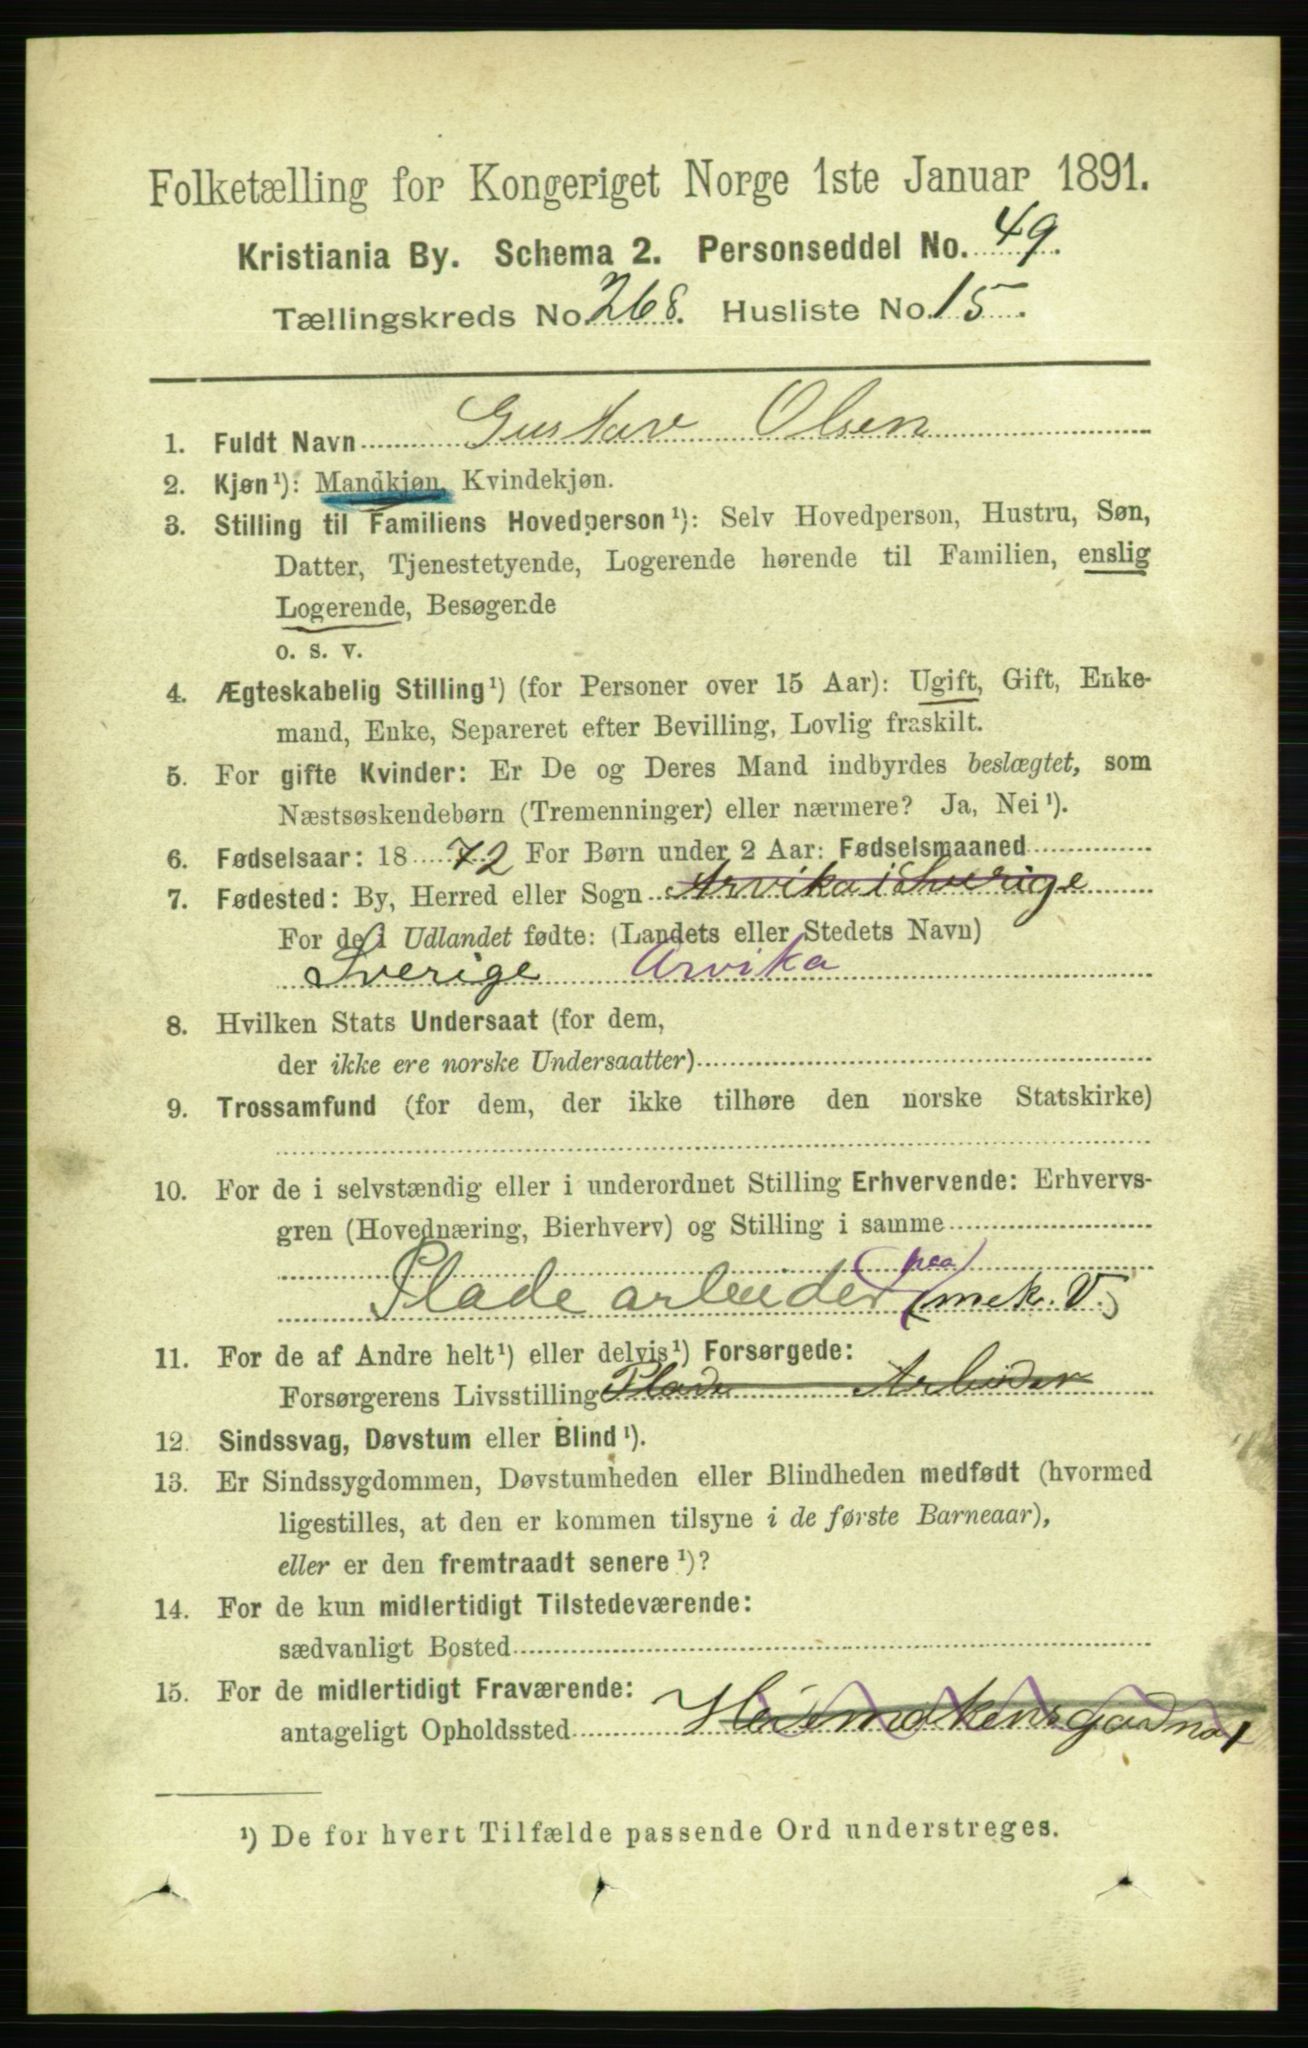 Folketælling for Kongeriget Norge 1ste Januar 1891.
Kristiania By. Schema 2. Personseddel No. 49.
Tællingskreds No. 268. Husliste No. 15.
1. Fuldt Navn Gustav Olsen
2. Kjøn¹): Mandkjøn, Kvindekjøn.
3. Stilling til Familiens Hovedperson¹): Selv Hovedperson, Hustru, Søn,
Datter, Tjenestetyende, Logerende hørende til Familien, enslig
Logerende, Besøgende
o. s. v.
4. Ægteskabelig Stilling¹) (for Personer over 15 Aar): Ugift, Gift, Enke-
mand, Enke, Separeret efter Bevilling, Lovlig fraskilt.
5. For gifte Kvinder: Er De og Deres Mand indbyrdes beslægtet, som
Næstsøskendebørn (Tremenninger) eller nærmere? Ja, Nei¹).
6. Fødselsaar: 1872 For Børn under 2 Aar: Fødselsmaaned
7. Fødested: By, Herred eller Sogn Arvika i Sverige
For de i Udlandet fødte: (Landets eller Stedets Navn)
Sverige Arvika
8. Hvilken Stats Undersaat (for dem,
der ikke ere norske Undersaatter)
9. Trossamfund (for dem, der ikke tilhøre den norske Statskirke)
10. For de i selvstændig eller i underordnet Stilling Erhvervende: Erhvervs-
gren (Hovednæring, Bierhverv) og Stilling i samme
Plade arbeider (paa) (mek. V.)
11. For de af Andre helt¹) eller delvis¹) Forsørgede:
Forsørgerens Livsstilling Plade Arbeider
12. Sindssvag, Døvstum eller Blind¹).
13. Er Sindssygdommen, Døvstumheden eller Blindheden medfødt (hvormed
ligestilles, at den er kommen tilsyne i de første Barneaar),
eller er den fremtraadt senere¹)?
14. For de kun midlertidigt Tilstedeværende:
sædvanligt Bosted
15. For de midlertidigt Fraværende:
antageligt Opholdssted
¹) De for hvert Tilfælde passende Ord understreges.